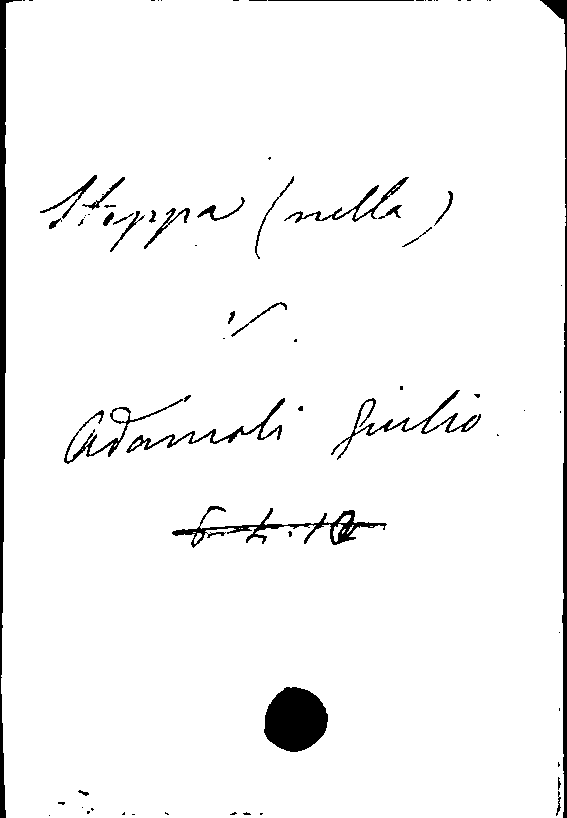 Steppa (nella)
v.
Adamoli Giulio
6.4.10